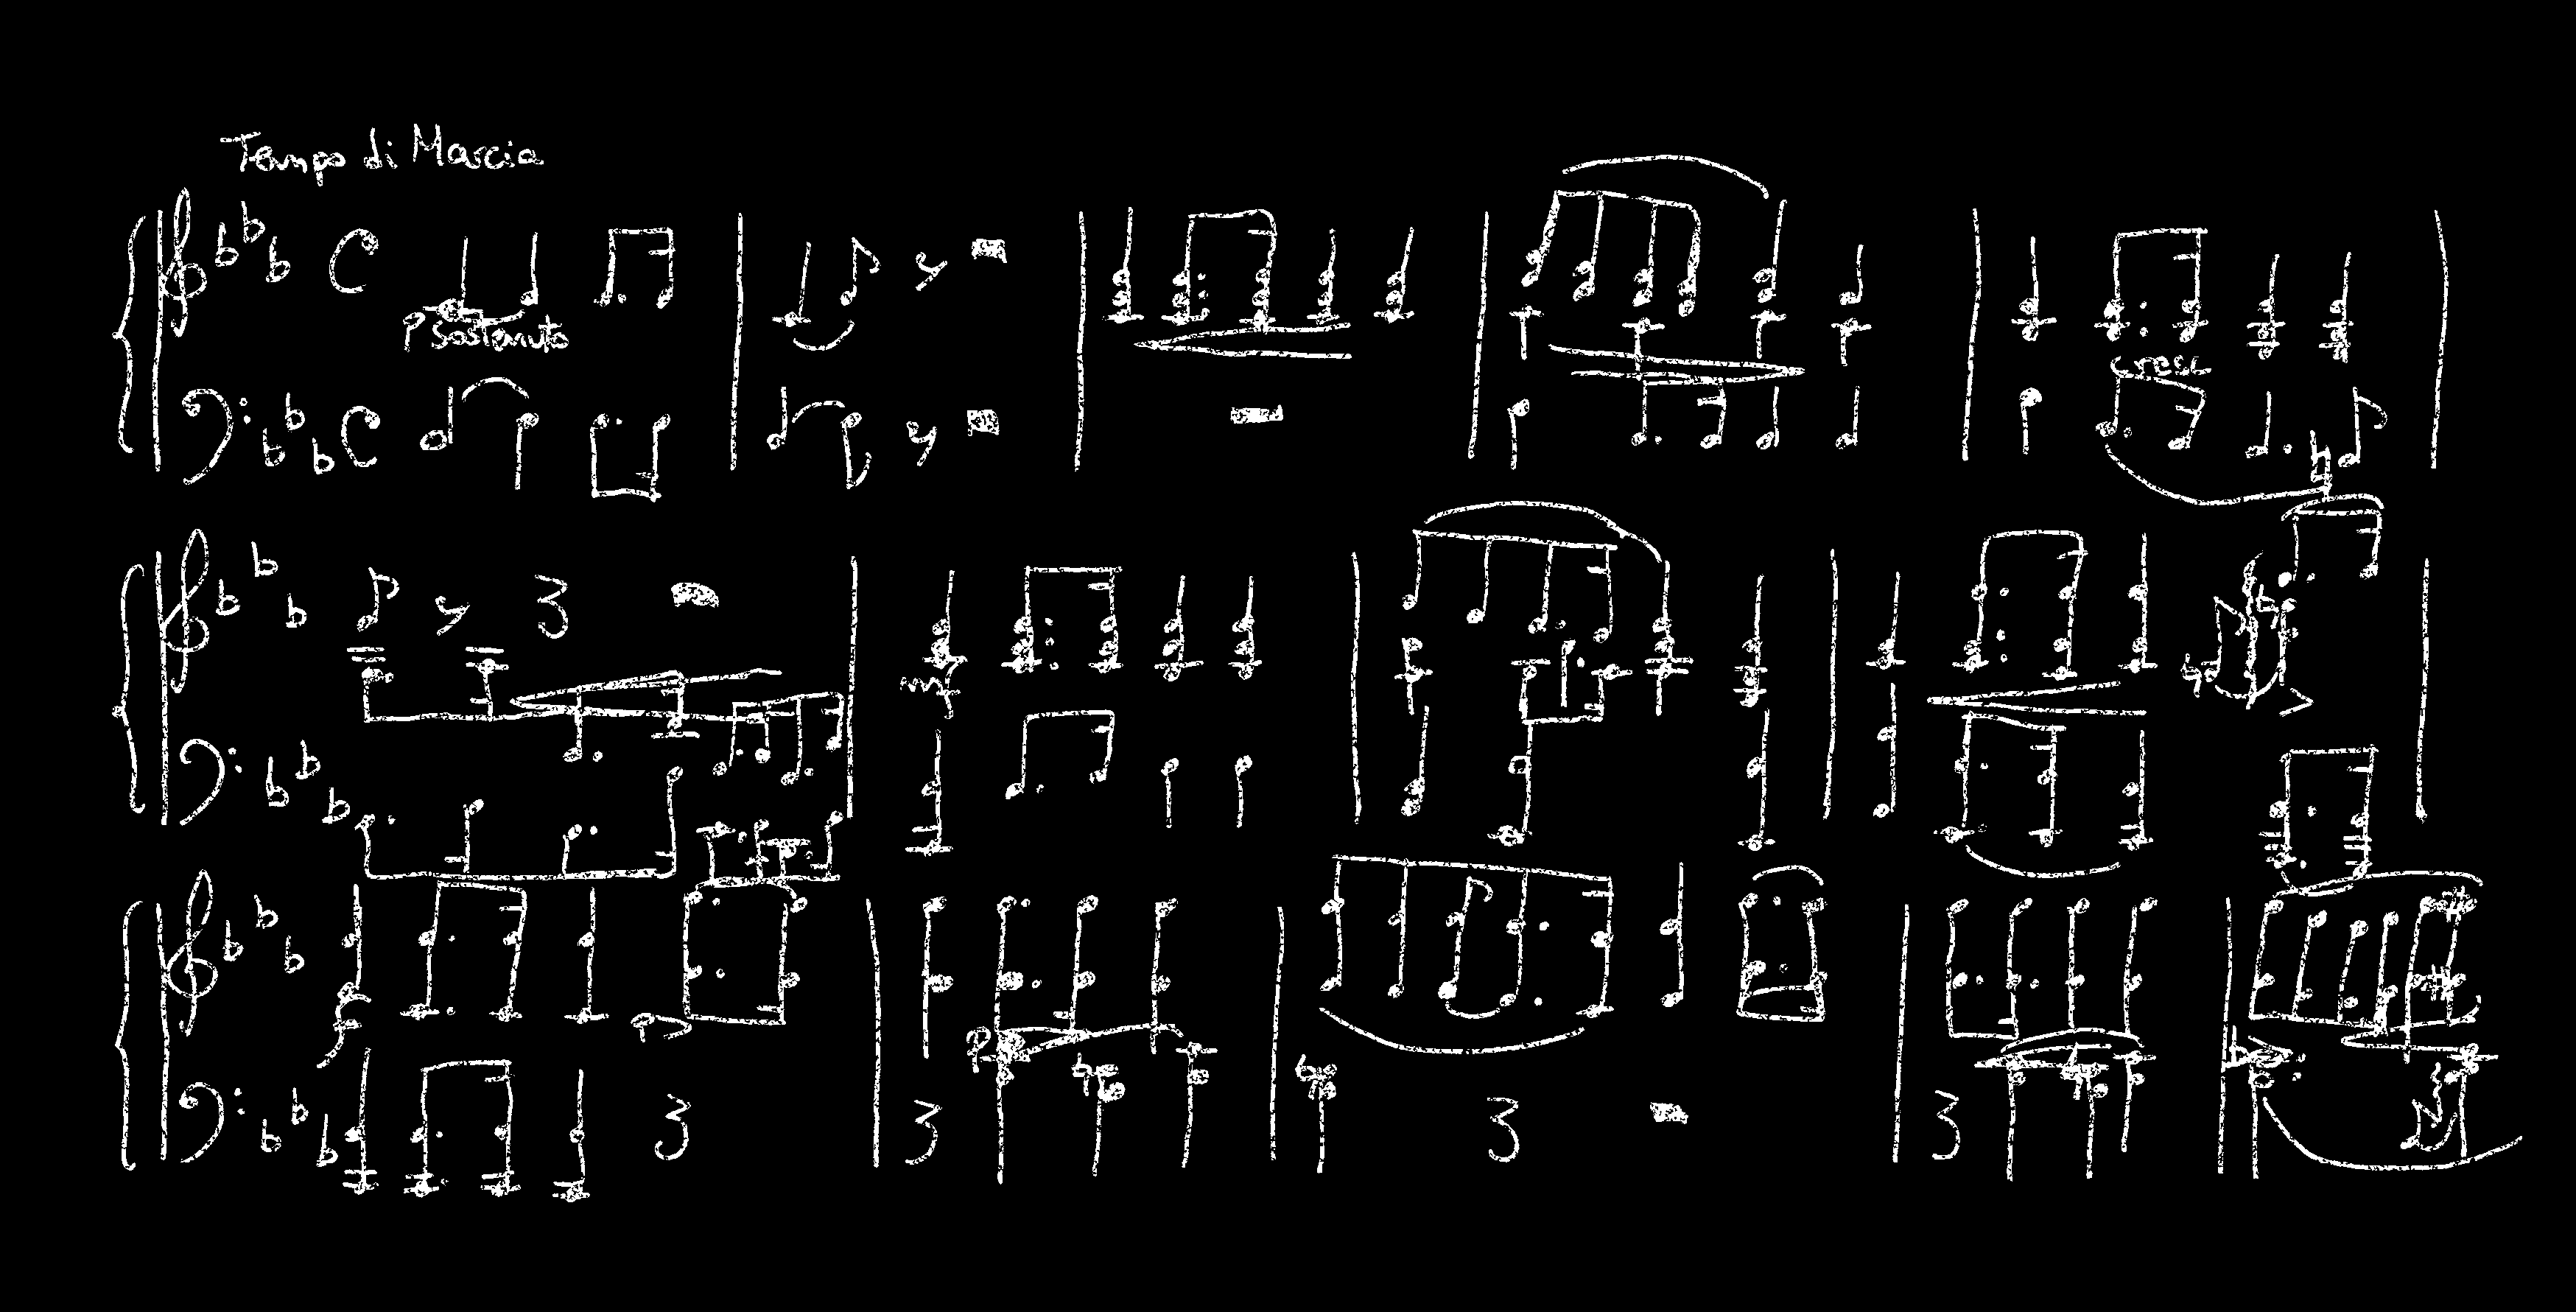 Tempo di Marcia
P Sostenuto
cresc
mf
f
P
P